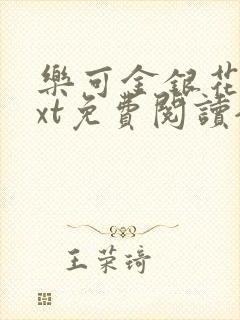 樂可金銀花
xt免費閱讀
王荣琦